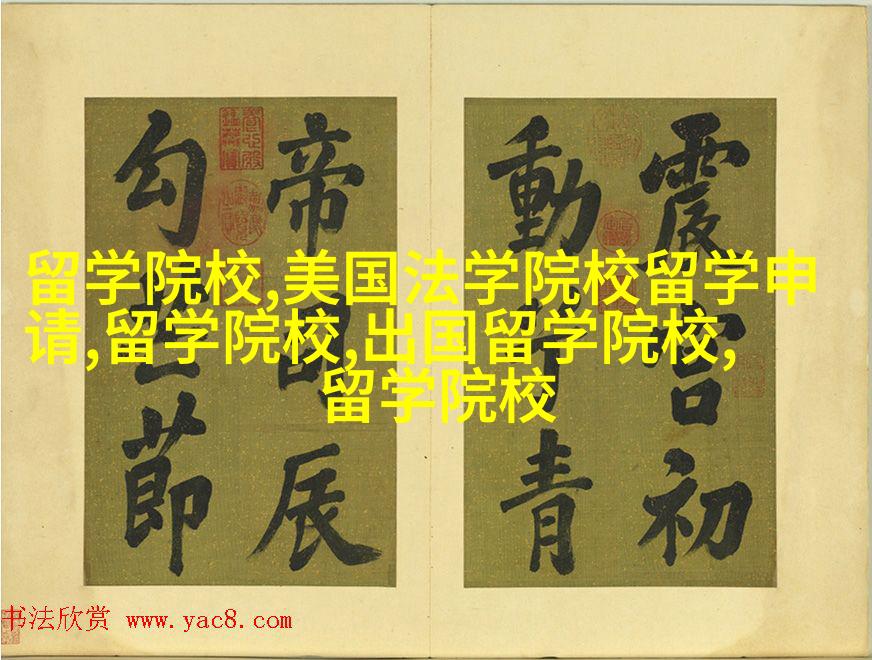 留学院校,美国法学院校留学申
请,留学院校,出国留学院校,
留学院校
震宫初
動青
帝辰
勾莭
书法欣赏 www.yac8.com